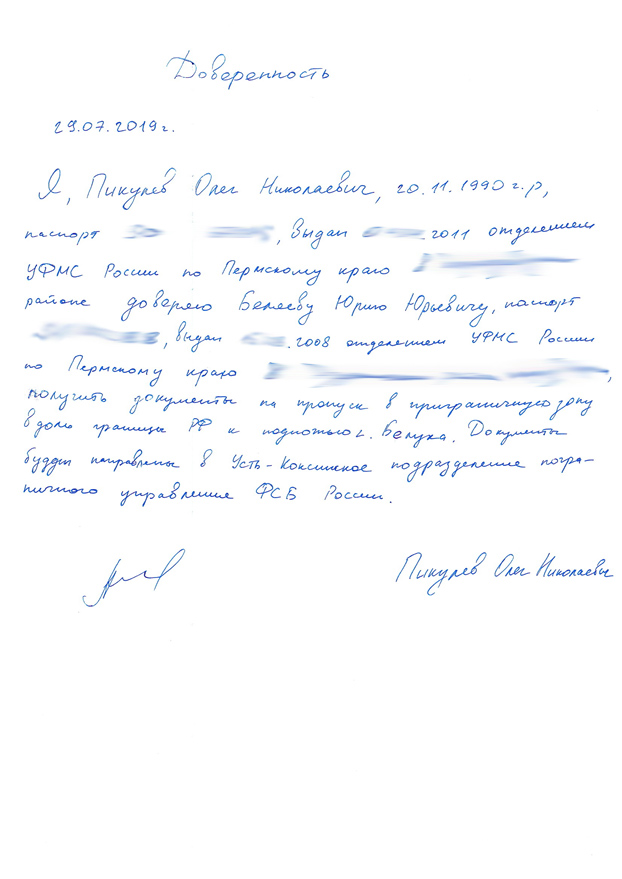 Доверенность
29.07.2019г.
Я, Пикулев Олег Николаевич, 20.11.1990 г.р,
паспорт , выдан 2011 отделением
УФМС России по Пермскому краю
районе доверяю Белееву Юрию Юрьевичу, паспорт
, выдан .2008 отделением УФМС России
по Пермскому краю ,
получить документы на пропуск в приграничную зону
вдоль границы РФ к подножью г. Белуха. Документы
будут направлены в Усть-Коксинское подразделение погра-
ничного управление ФСБ России.
Пикулев Олег Николаевич